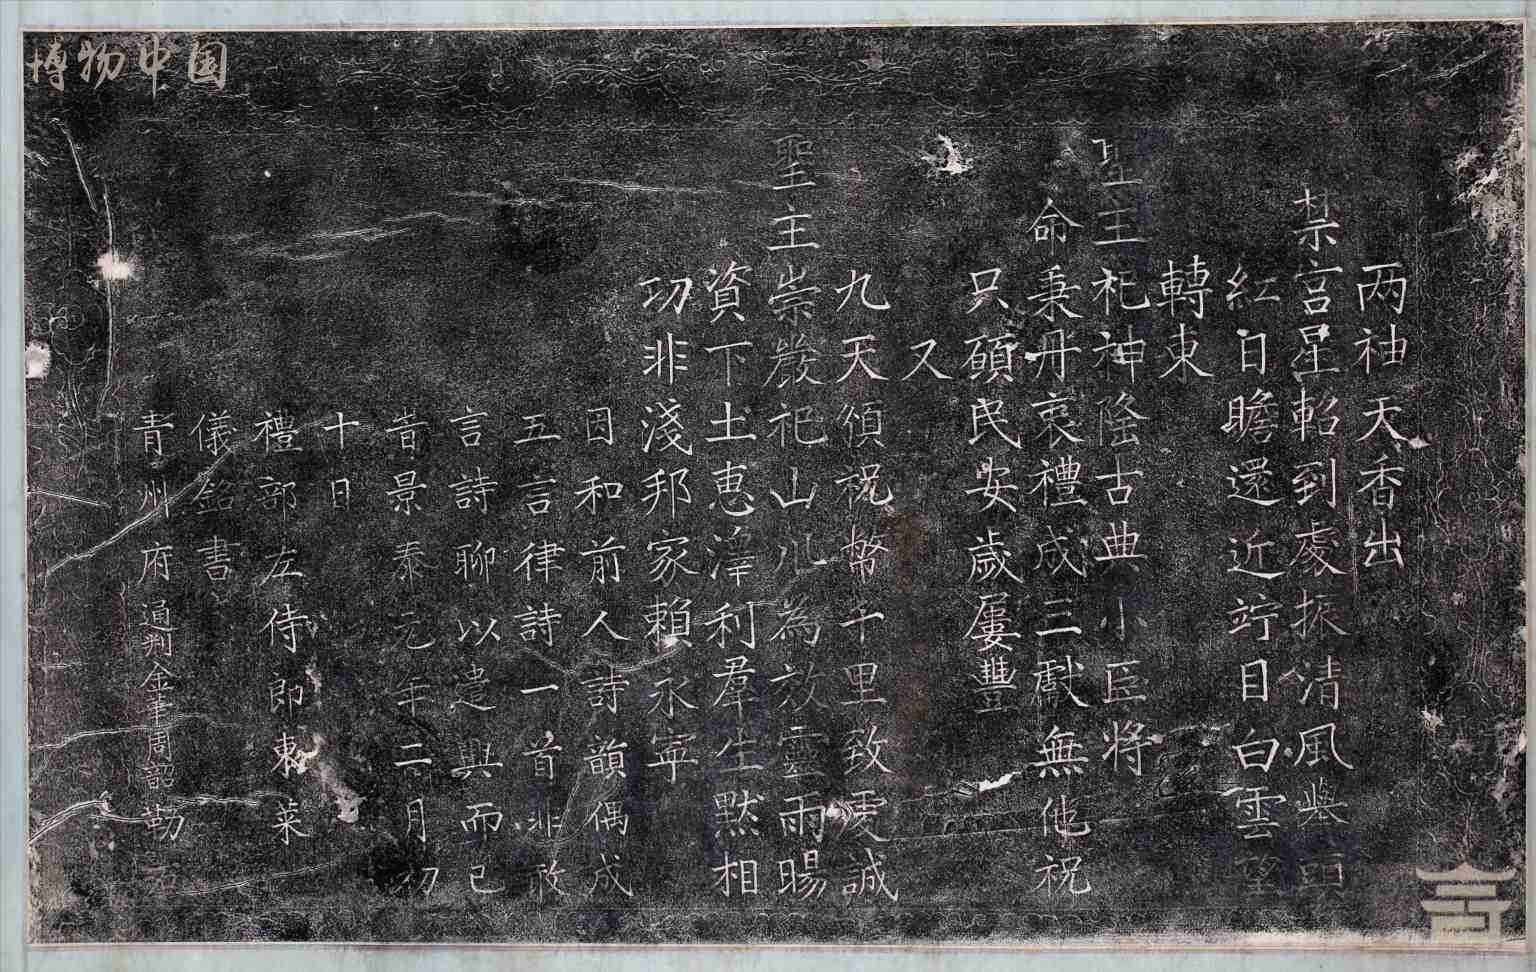 博物中国
两袖天香出
禁宫星軺到處振清風舉頭
紅日瞻還近竚目白雲望
轉東
聖王祀神隆古典小臣將
命秉丹衷禮成三獻無他祝
只願民安歲屢豐
又
九天頒祝幣千里致虔誠
聖主崇嚴祀山川為放靈雨暘
資下土恵澤利羣生黙相
功非淺邦家賴永寜
因和前人詩韻偶成
五言律詩一首非敢
言詩聊以遣興而已
旹景泰元年二月初
十日
禮部左侍郎東萊
儀銘書
青州府通判金華周詔勒石